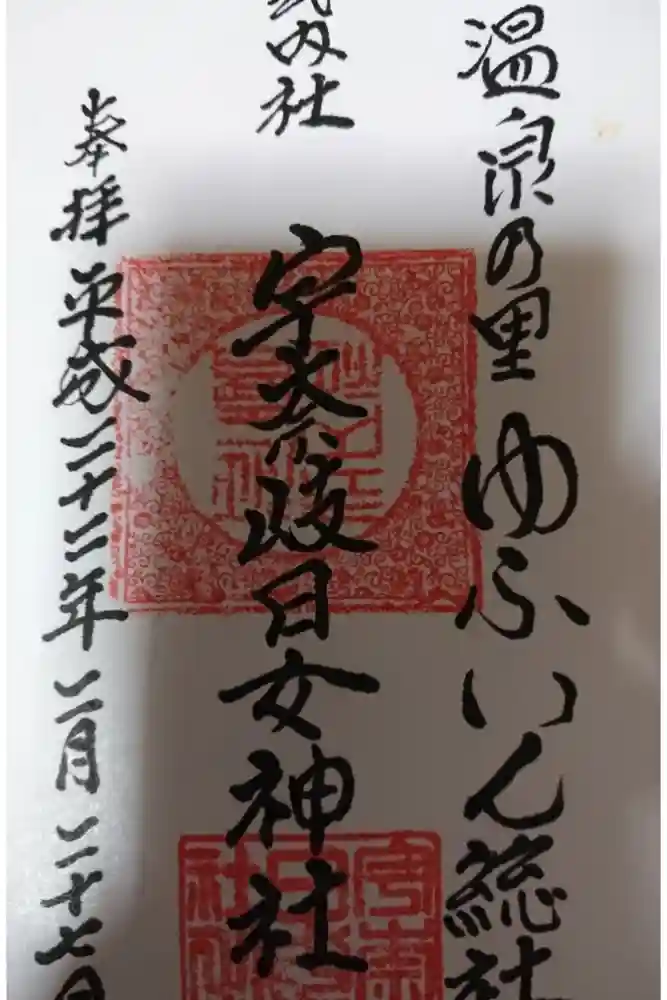 温泉乃里 ゆふいん総社
式内社
宇奈岐日女神社
奉拝 平成二十二年 二月 二十七日